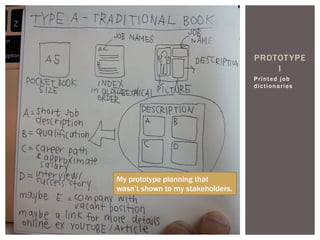 TYPE A - TRADITIONAL BOOK
JOB NAMES
JOB
NAME
A5
DESCRIPTION
POCKET BOOK
SIZE
INDEX
ORDER
PICTURE
DESCRIPTION
A
B
C
D
A = short job
description
B = qualification
C = career path
& approximate
salary
D = interview/
success story
maybe E = company with
vacant position
maybe a link for more details
online ex. YOUTUBE / Article
My prototype planning that
wasn't shown to my stakeholders.
PROTOTYPE
I
Printed job
dictionaries